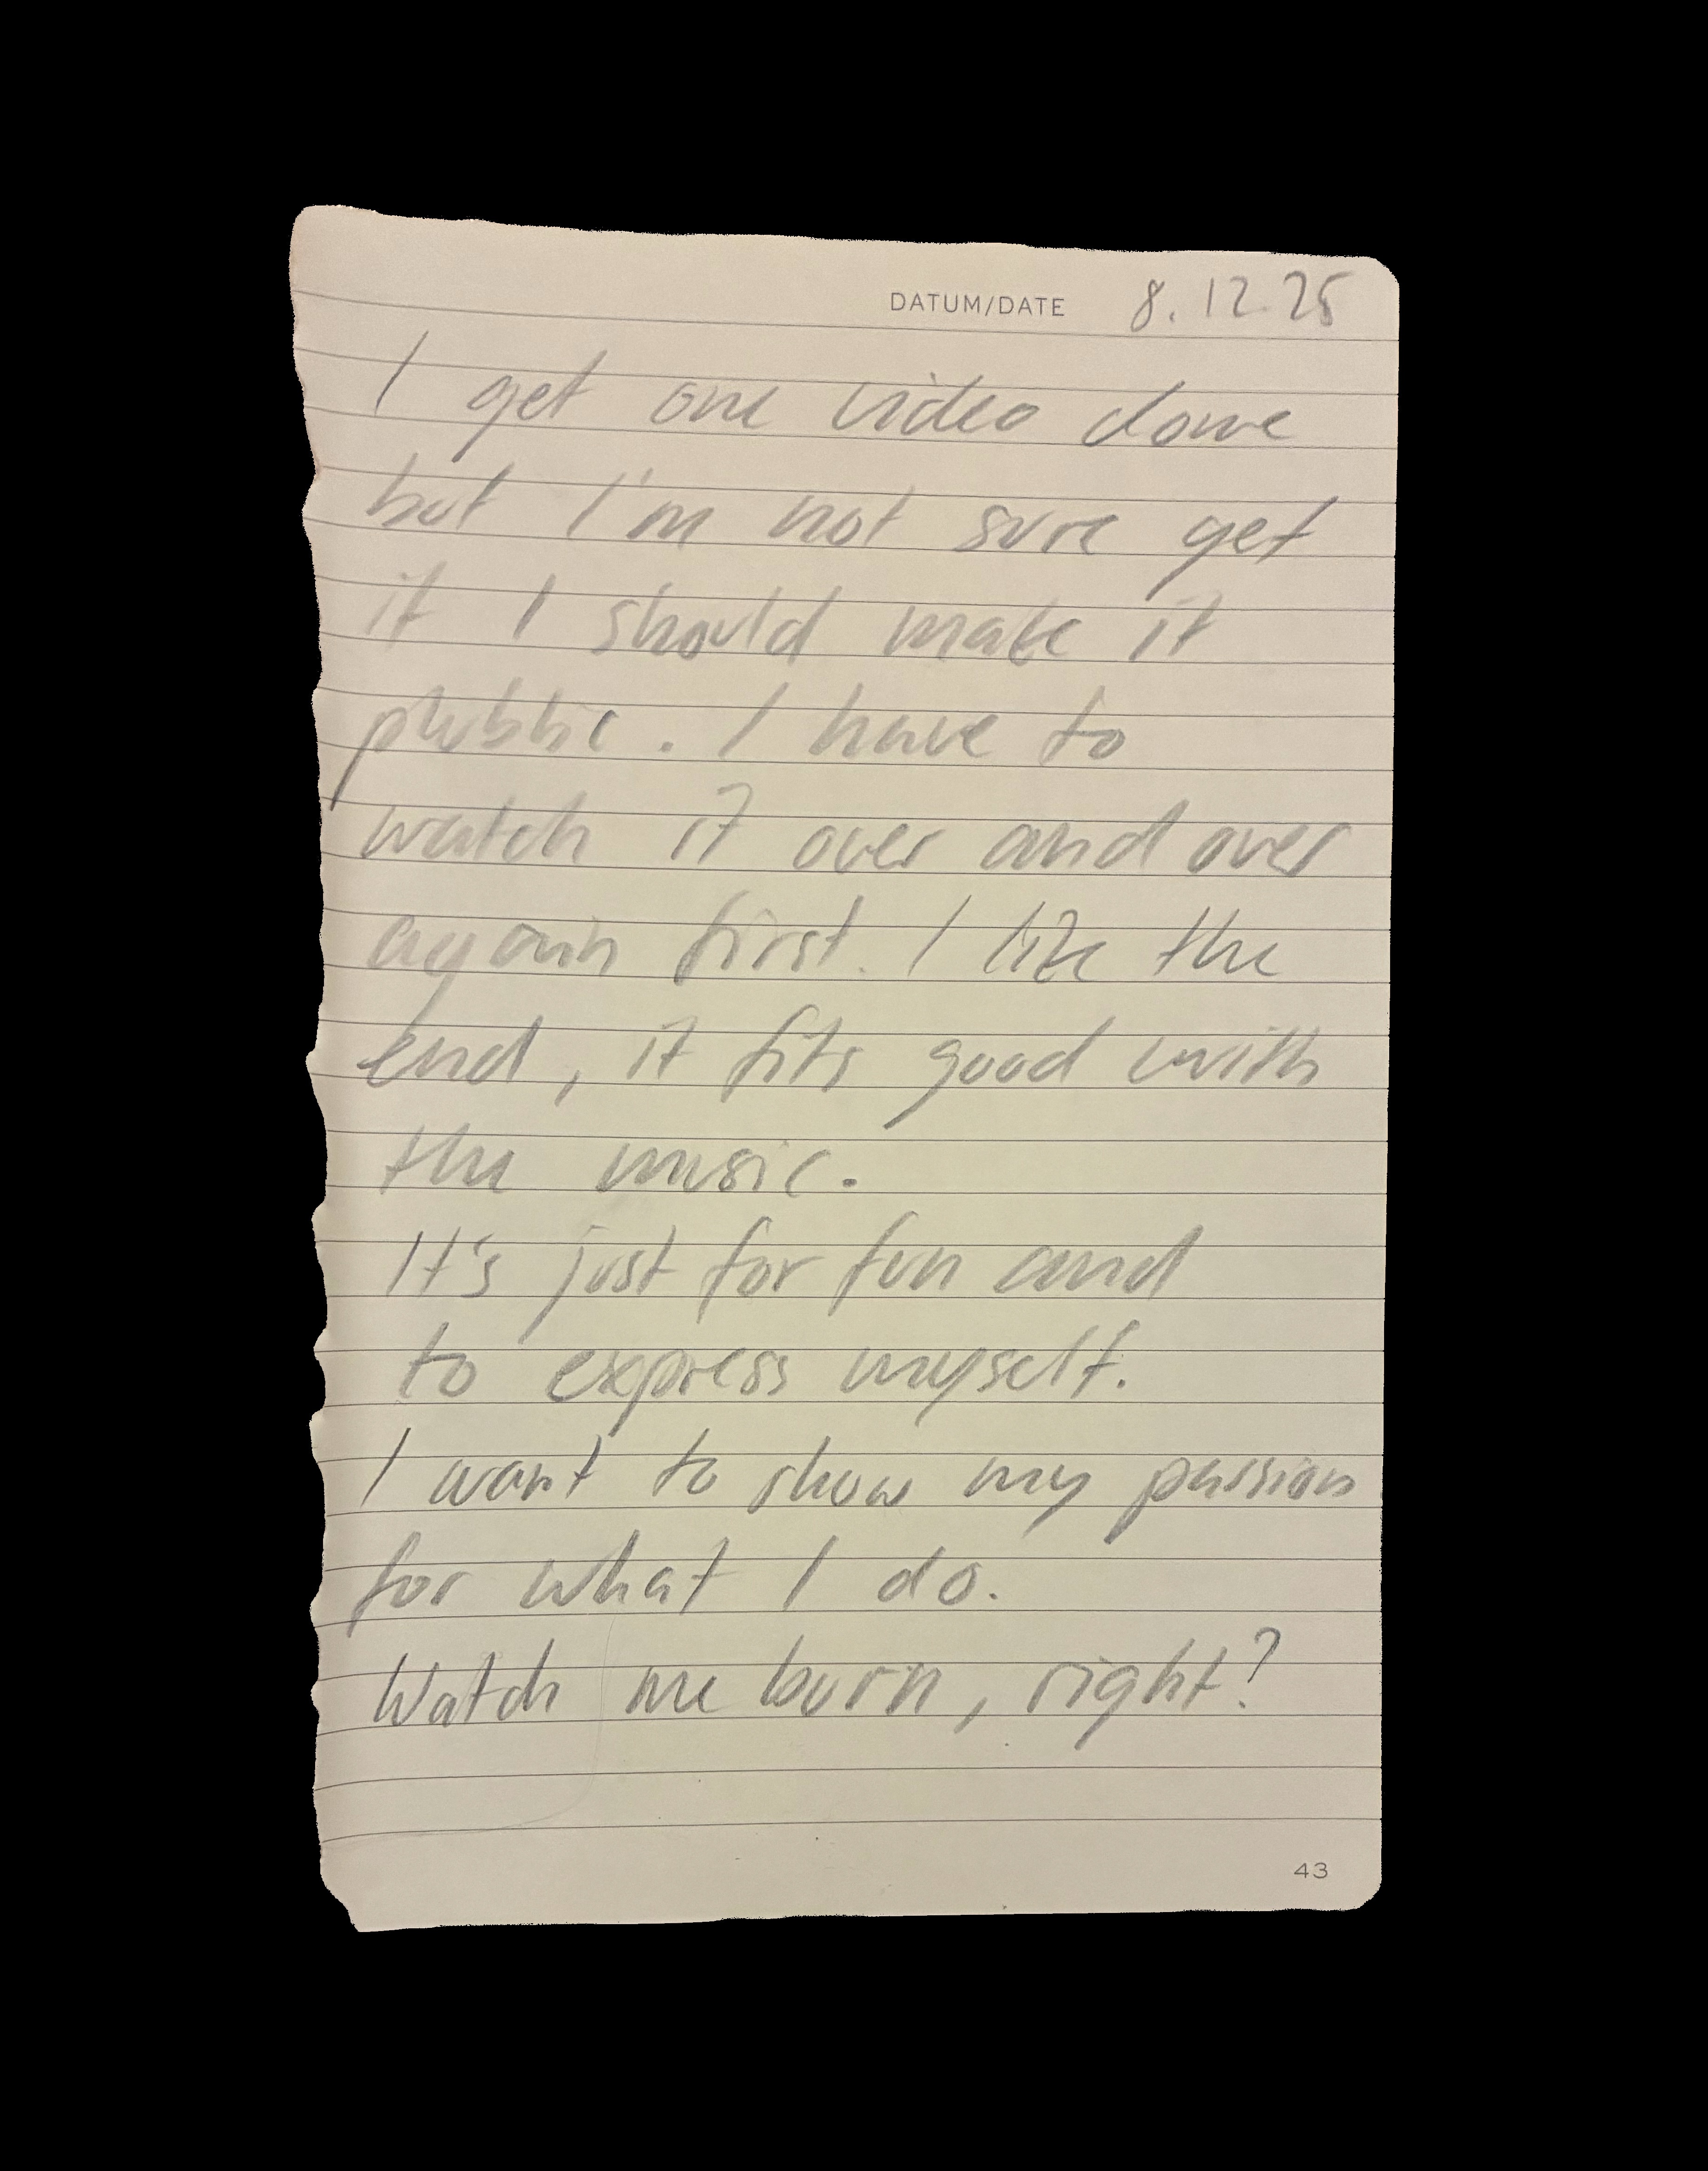 DATUM/DATE 8.12.25
I get one video done
but I'm not sure get
if I should make it
public. I have to
watch it over and over
again first. I like the
end, it fits good with
the music.
It's just for fun and
to express myself.
I want to show my passion
for what I do.
Watch me burn, right?
43